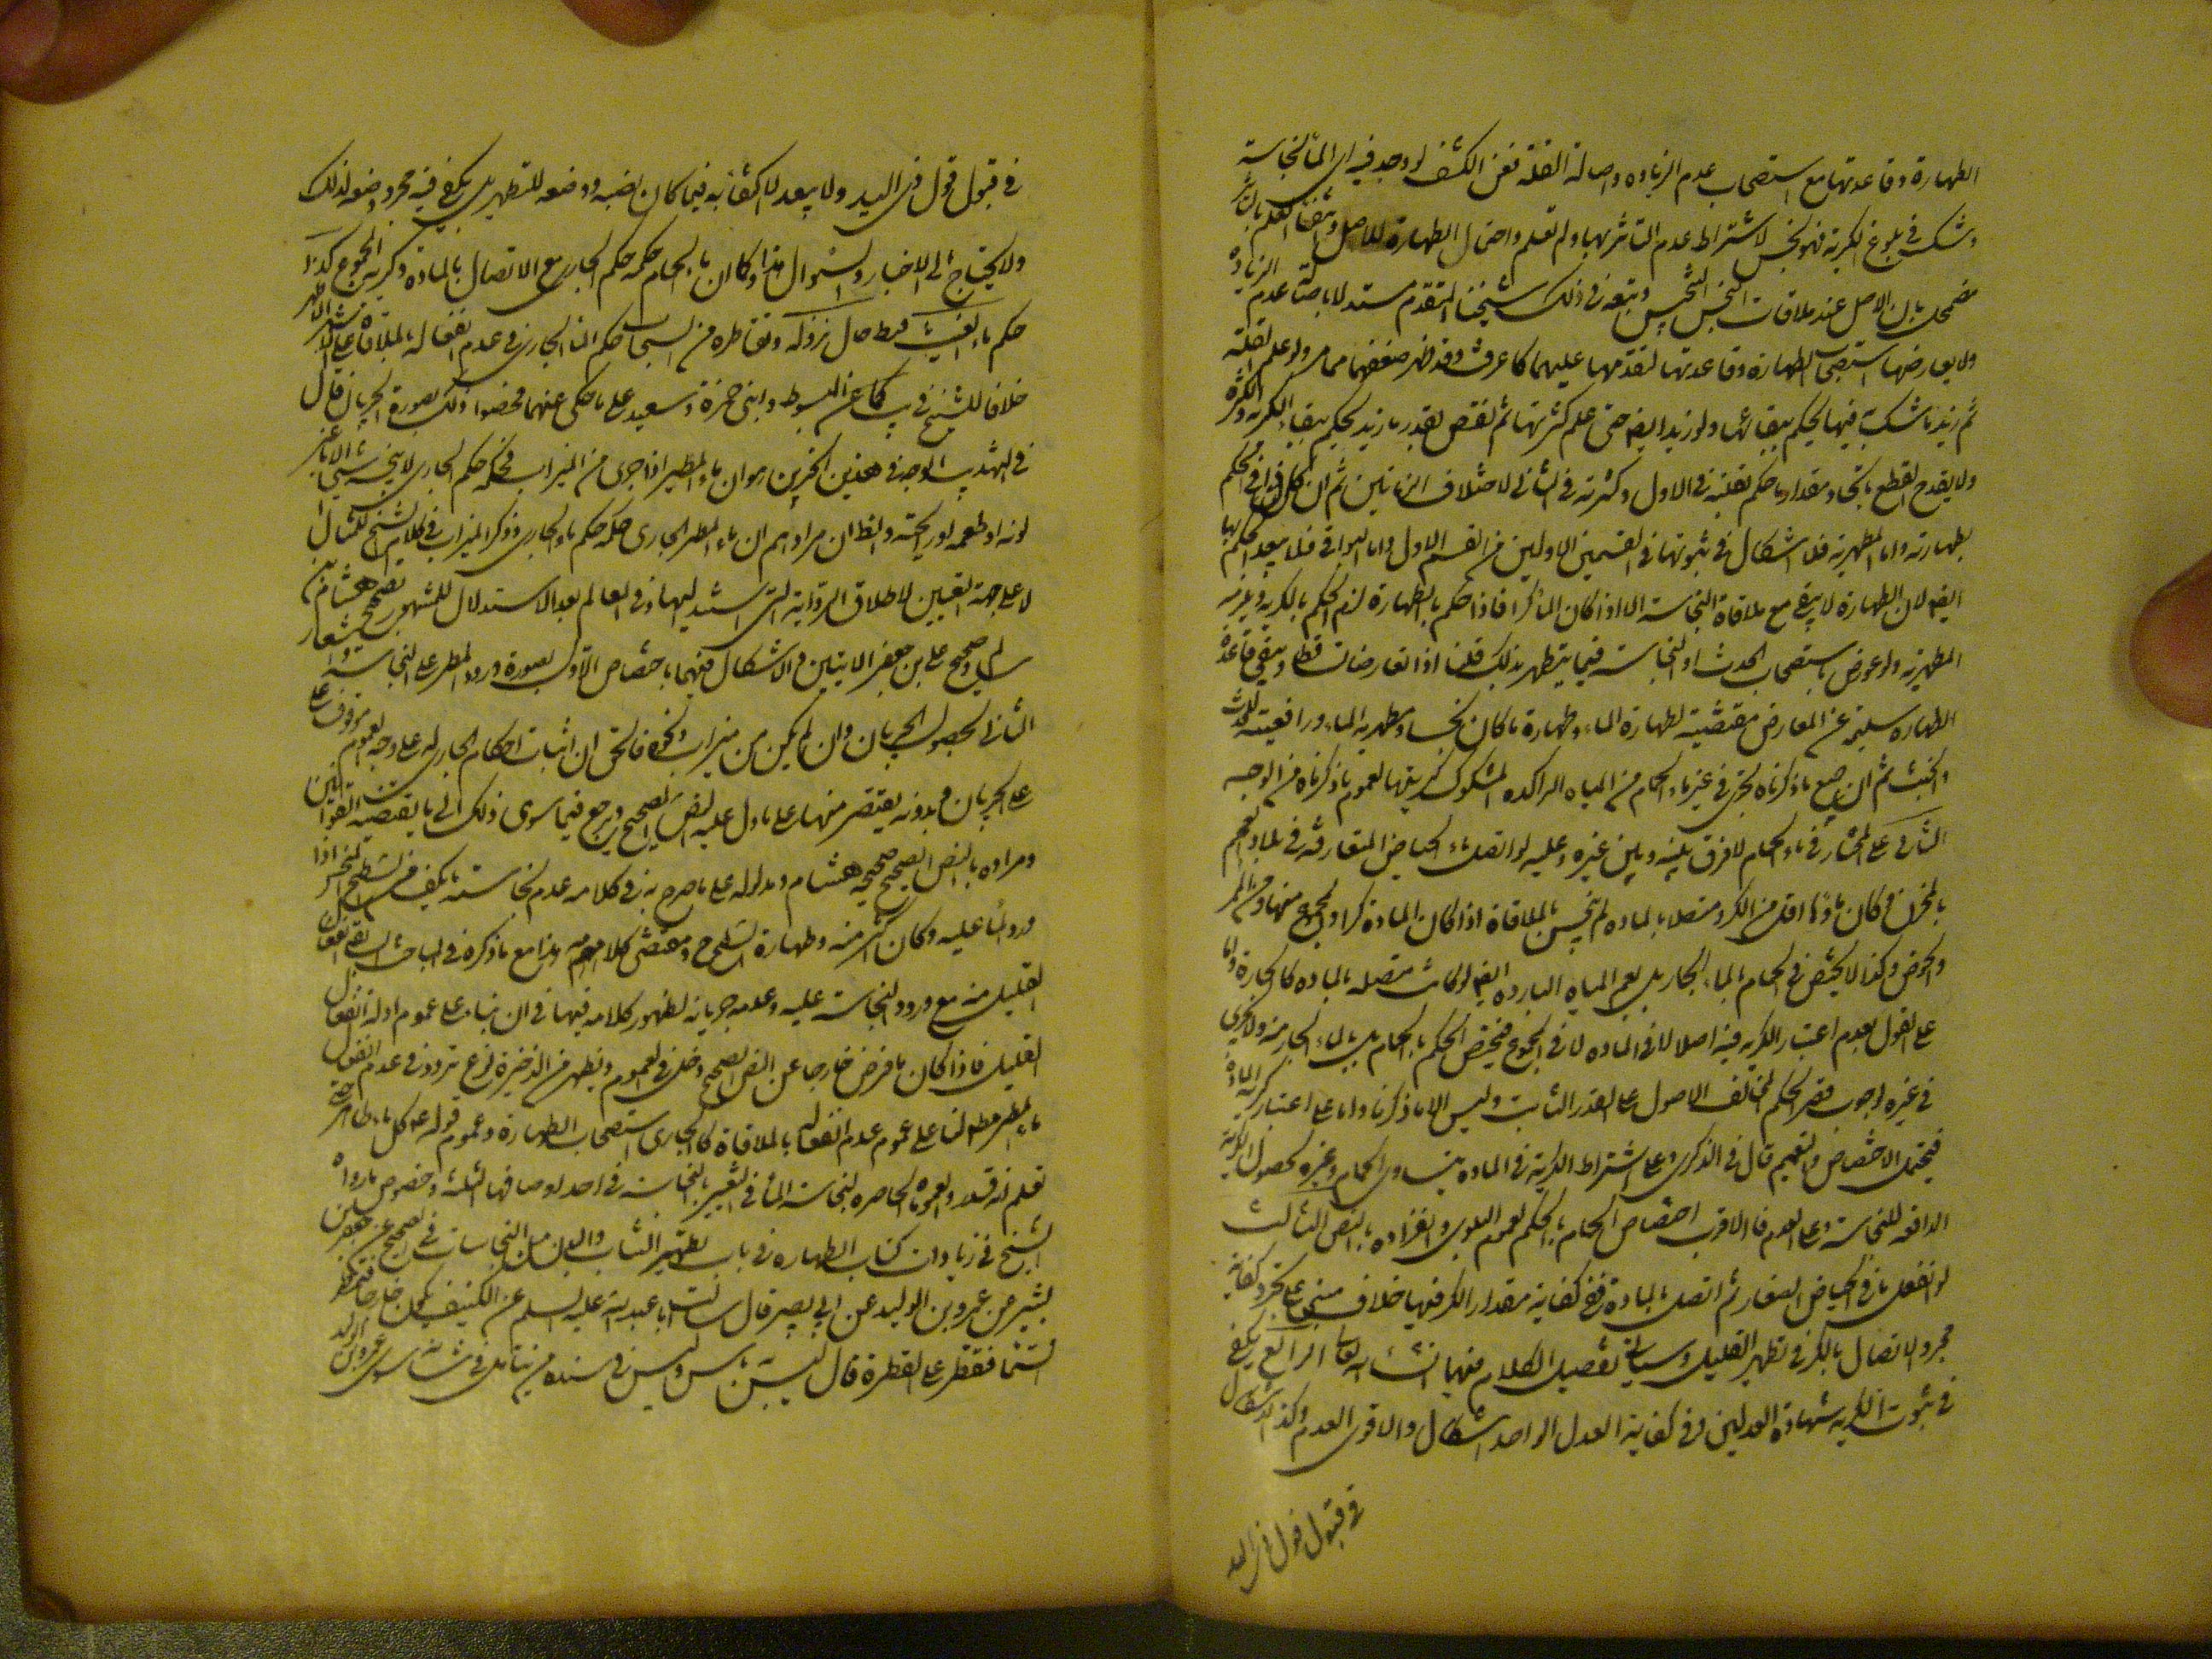 الطهارة وقاعدتها مع استصحاب عدم الزيادة واصالة القلة فعن الكشف لو وجد فيه اى الماء نجاسة
وشك فى بلوغ الكرية فهو نجس لاشتراط عدم التاثر بها ولم تعلم واحتمال الطهارة للاصل
مضمحل بان الاصل عند ملاقات النجس التنجس وتبعه فى ذلك شيخنا المتقدم مستدلا باصالة عدم الزيادة
ولا يعارضها استصحاب الطهارة وقاعدتها لتقدمها عليهما كما عرفت وقد ظهر ضعفهما مما مر ولو علم القلة
ثم زيد ما شك فيها يحكم ببقائها ولو زيد ايضا حتى علم كثرتها ثم نقص بقدر ما زيد يحكم ببقاء الكرية والكثرة
ولا يقدح القطع باتحاد مقدار ما حكم بقلته فى الاول وكثرته فى الثانى لاختلاف الزمانين ثم ان الكل فى الحكم
بطهارته واما المطهرية فلا اشكال فى ثبوتها فى القسمين الاولين من القسم الاول واما البواقى فلا يبعد الحكم بها
ايضا لان الطهارة لا يبقى مع ملاقاة النجاسة الا اذا كان الماء كرا فاذا حكم بالطهارة لزم الحكم بالكرية ويلزمه
المطهرية ولو عورض باستصحاب الحدث او النجاسة فيما يتطهر بذلك قلنا اذا تعارضا تساقطا ويبقى قاعدة
الطهارة سليمة عن المعارض مقتضية لطهارة الماء وطهارة ما كان نجسا ومطهرية الماء ورافعيته للحدث
والخبث ثم ان جميع ما ذكرناه يجرى فى غير ماء الحمام من المياه الراكدة المشكوك كريتها لعموم ما ذكرناه من الوجه
الثالث على المختار فى ماء الحمام لا فرق بينه وبين غيره وعليه لو اتصل ماء الحياض المتعارفة فى بلاد العجم
بالخزانة وكان ماؤها اقل من الكر ومتصلا بالمادة لم ينجس بالملاقاة اذا كان المادة كرا او المجموع منها ومن
والحوض وكذا لا يختص فى الحمام بالماء الحار بل يعم المياه الباردة ايضا لو كانت متصلة بالمادة كالحارة واما
على القول بعدم اعتبار الكرية فيه اصلا لا فى المادة لا فى المجموع فيختص الحكم بالحمام بل بالماء الحار منه ولا يجرى
فى غيره لوجوب قصر الحكم المخالف للاصول على القدر الثابت وليس الا ما ذكرنا واما على اعتبار كرية المادة
فيحتمل الاختصاص والتعميم قال فى الذكرى وعلى اشتراط الكرية فى المادة يتساوى الحمام وغيره لحصول الكرية
الدافعة للنجاسة وعلى العدم فالاقرب اختصاص الحمام بالحكم لعموم البلوى وانفراده بالنص الثالث
لو انفعل ما فى الحياض الصغار ثم اتصل بالمادة ففى كفاية مقدار الكر فيها خلاف مبنى على كفاية
مجرد الاتصال بالكر فى تطهير القليل وسياتى تفصيل الكلام فيها انشاء الله تعالى الرابع يكفى
فى ثبوت الكرية شهادة العدلين وفى كفاية العدل الواحد اشكال والاقوى العدم وكذا الاشكال
فى قبول قول ذى اليد
فى قبول قول ذى اليد ولا يبعد الاكتفاء به فيما كان نصبه ووضعه للتطهير بل يكفى فيه مجرد وضعه لذلك
ولا يحتاج الى الاخبار والسؤال هذا وكما ان ماء الحمام حكمه حكم الجارى مع الاتصال بالمادة وكرية المجموع كذا
حكم ماء الغيث حال نزوله وتقاطره من السحاب حكم الماء الجارى فى عدم انفعاله بالملاقاة على الاشهر الاظهر
خلافا للشيخ فى يب كما عن المبسوط وابنى حمزة وسعيد على ما حكى عنهما فخصوا ذلك بصورة الجريان قال
فى التهذيب الوجه فى هذين الخبرين هو ان ماء المطر اذا جرى من الميزاب فحكمه حكم الجارى لا ينجسه شىء الا ما غير
لونه او طعمه او ريحته والظ ان مرادهم ان ماء المطر الجارى حكمه حكم الماء الجارى وذكر الميزاب فى كلام الشيخ للمثال
لا على جهة التعيين لاطلاق الرواية التى استند اليها وفى المعالم بعد الاستدلال للمشهور بصحيح هشام بن
سالم وصحيح على بن جعفر الاتيتين والاشكال فيهما باختصاص الاول بصورة ورود المطر على النجاسة
الثانى بحصول الجريان وان لم يكن من ميزاب ونحوه فالحق ان اثبات احكام الجارى له على وجه العموم موقوف على
على الجريان وبدونه يقتصر منها على ما دل عليه النص الصحيح ويرجع فيما سوى ذلك الى ما يقتضيه القوانين
ومراده بالنص الصحيح صحيحه هشام ومدلوله على ما صرح به فى كلامه عدم نجاسة ما يكف من السطح النجس اذا
ورد الماء عليه وكان اكثر منه وطهارة السطح ومقتضى كلامه مع ما ذكره فى المباحث السابقة انفعال
القليل منه مع ورود النجاسة عليه وعدم جريانه لظهور كلامه فيها فى ان بناءه على عموم ادلة انفعال
القليل فاذا كان ما فرض خارجا عن النص الصحيح دخل فى العموم ويظهر من الذخيرة نوع تردد فى عدم انفعال
ماء المطر مطلقا لنا على عموم عدم انفعاله بالملاقاة كالجارى استصحاب الطهارة وعموم قوله ع كل ماء طاهر حتى
تعلم انه قذر والعموم الحاصرة لنجاسة الماء فى التغير بالنجاسة فى احد اوصافها الثلثة وخصوص ما رواه
الشيخ فى زيادات كتاب الطهارة فى باب تطهير الثياب والبدن من النجاسات فى الصحيح عن جعفر بن
بشير عن عمرو بن الوليد عن ابى بصير قال سالت ابا عبد الله عليه السلم عن الكنيف يكون خارجا
السماء فتقطر على القطرة قال ليس به باس وليس فى سنده من يتامل فى شانه سوى عمرو بن الوليد